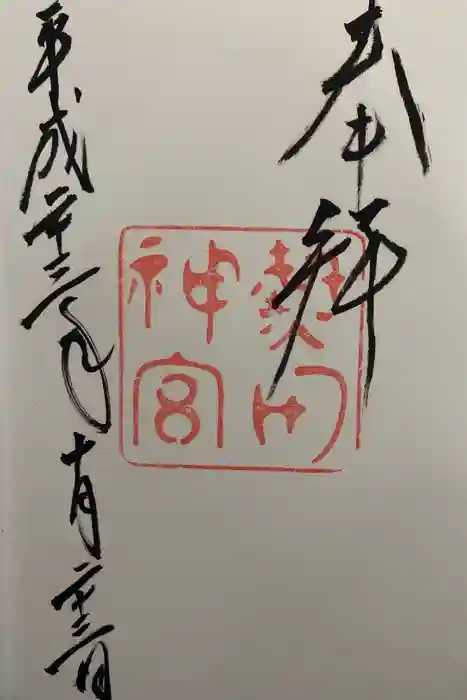 奉拝
熱田
神宮
平成二十三年十月二十三日